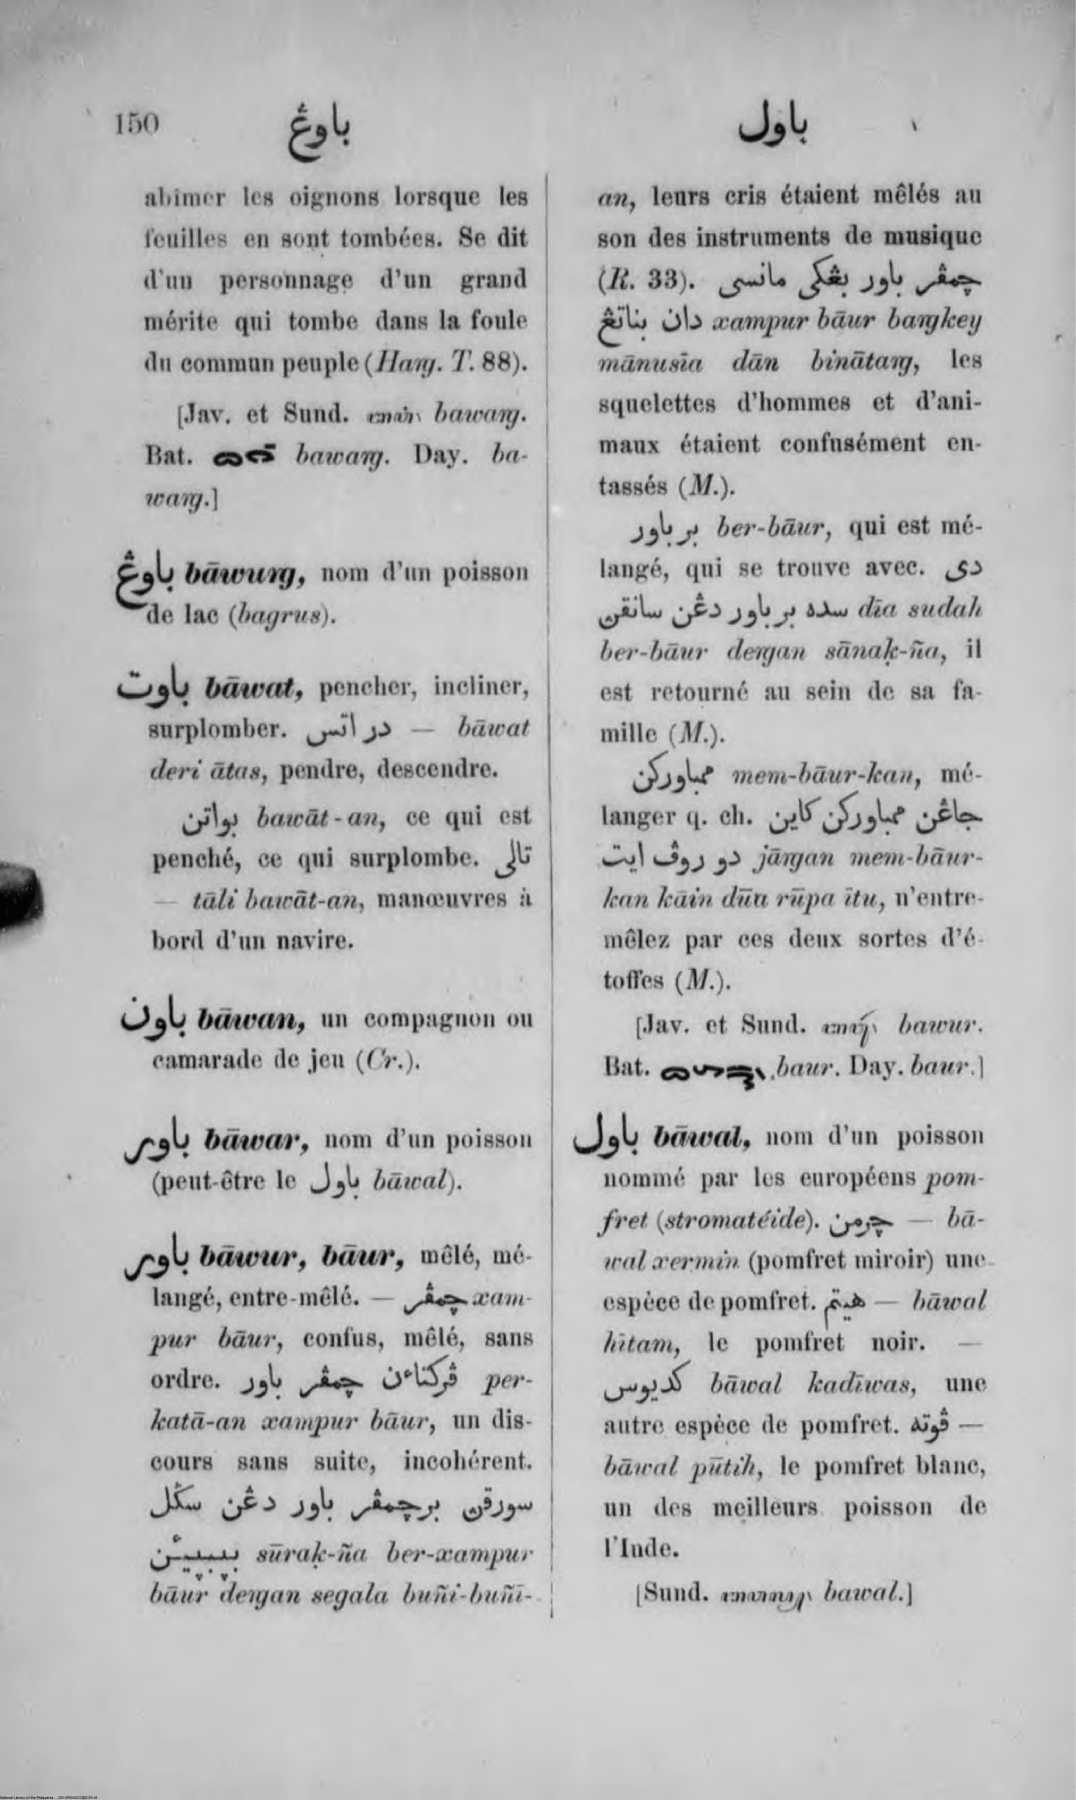 150
باوڠ
باول
abîmer les oignons lorsque les
feuilles en sont tombées. Se dit
d'un personnage d'un grand
mérite qui tombe dans la foule
du commun peuple (Harg. T. 88).
[Jav. et Sund. bawarg.
Bat. bawarg. Day. ba-
warg.]
باوڠ bāwurg, nom d'un poisson
de lac (bagrus).
باوت bāwat, pencher, incliner,
surplomber. در اتس — bāwat
deri ātas, pendre, descendre.
بواتن bawāt-an, ce qui est
penché, ce qui surplombe. تالى
— tāli bawāt-an, manœuvres à
bord d'un navire.
باون bāwan, un compagnon ou
camarade de jeu (Cr.).
باور bāwar, nom d'un poisson
(peut-être le باول bāwal).
باور bāwur, bāur, mêlé, mé-
langé, entre-mêlé. — چمڤر xam-
pur bāur, confus, mêlé, sans
ordre. ڤركتاءن چمڤر باور per-
katā-an xampur bāur, un dis-
cours sans suite, incohérent.
سورقن برچمڤر باور دڠن سڬل
sūraḳ-ña ber-xampur
bāur dergan segala buñi-buñi-
an, leurs cris étaient mêlés au
son des instruments de musique
(R. 33). چمڤر باور بڠكى مانسى
دان بناتڠ xampur bāur bargkey
mānusīa dān binātarg, les
squelettes d'hommes et d'ani-
maux étaient confusément en-
tassés (M.).
بر باور ber-bāur, qui est mé-
langé, qui se trouve avec. دى
سده بر باور دڠن سانقن dīa sudah
ber-bāur dergan sānaḳ-ña, il
est retourné au sein de sa fa-
mille (M.).
ممباوركن mem-bāur-kan, mé-
langer q. ch. جاڠن ممباوركن كاين
دو روڤ ايت jārgan mem-bāur-
kan kāin dūa rūpa ītu, n'entre-
mêlez par ces deux sortes d'é-
toffes (M.).
[Jav. et Sund. bawur.
Bat. baur. Day. baur.]
باول bāwal, nom d'un poisson
nommé par les européens pom-
fret (stromatéide). چرمن — bā-
wal xermin (pomfret miroir) une
espèce de pomfret. هيتم — bāwal
hītam, le pomfret noir. —
كديوس bāwal kadīwas, une
autre espèce de pomfret. ڤوته —
bāwal pūtih, le pomfret blanc,
un des meilleurs poisson de
l'Inde.
[Sund. bawal.]